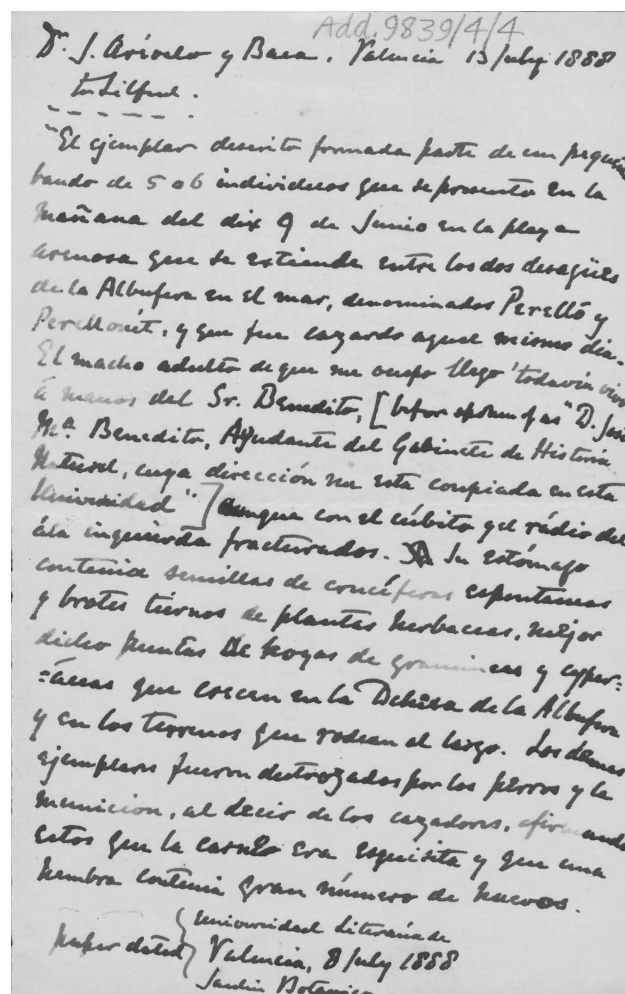 Add. 9839/4/4
Dr. J. Arévalo y Baca. Valencia 13 July 1888
to Lilford.
"El ejemplar descrito formada parte de un pequeño
bando de 5 o 6 individuos que se presento en la
mañana del dix 9 de Junio en la playa
arenosa que se extiende entre los dos desagües
de la Albufera en el mar, denominados Perelló y
Perellonét, y que fue cazardo aquel mismo dia.
El macho adulto de que me ocupo llego todavia vivo
á manos del Sr. Benedito, [before spoken of as "D. José
Ma. Benedito, Ayudante del Gabinete de Historia
Natural, cuya dirección me esta confiada en esta
Universidad"] aunque con el cúbito y el rádio del
ala izquierda fracturados. Su estómago
contenia semillas de crucíferas espontaneas
y brotes tiernos de plantas herbaceas, mejor
dicho puntas de hojas de gramineas y cyper=
=áceas que crecen en la Dehesa de la Albufera
y en los terrenos que rodean el lago. Los demas
ejemplares fueron destrozados por los perros y la
municion, al decir de los cazadores, afirmando
estos que la carne era esquisita y que una
hembra contenia gran número de huevos.
Universidad Literaria de
paper dated Valencia, 8 July 1888
Jardin Botanico